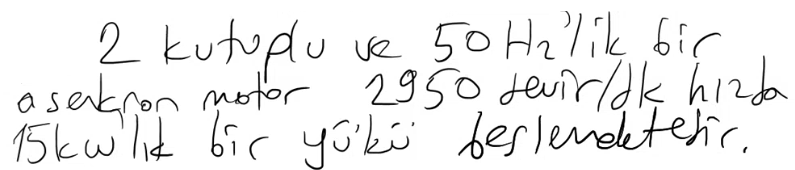 2 kutuplu ve 50 Hz'lik bir
asenkron motor 2950 devir/dk hızda
15kw'lık bir yükü beslemektedir.